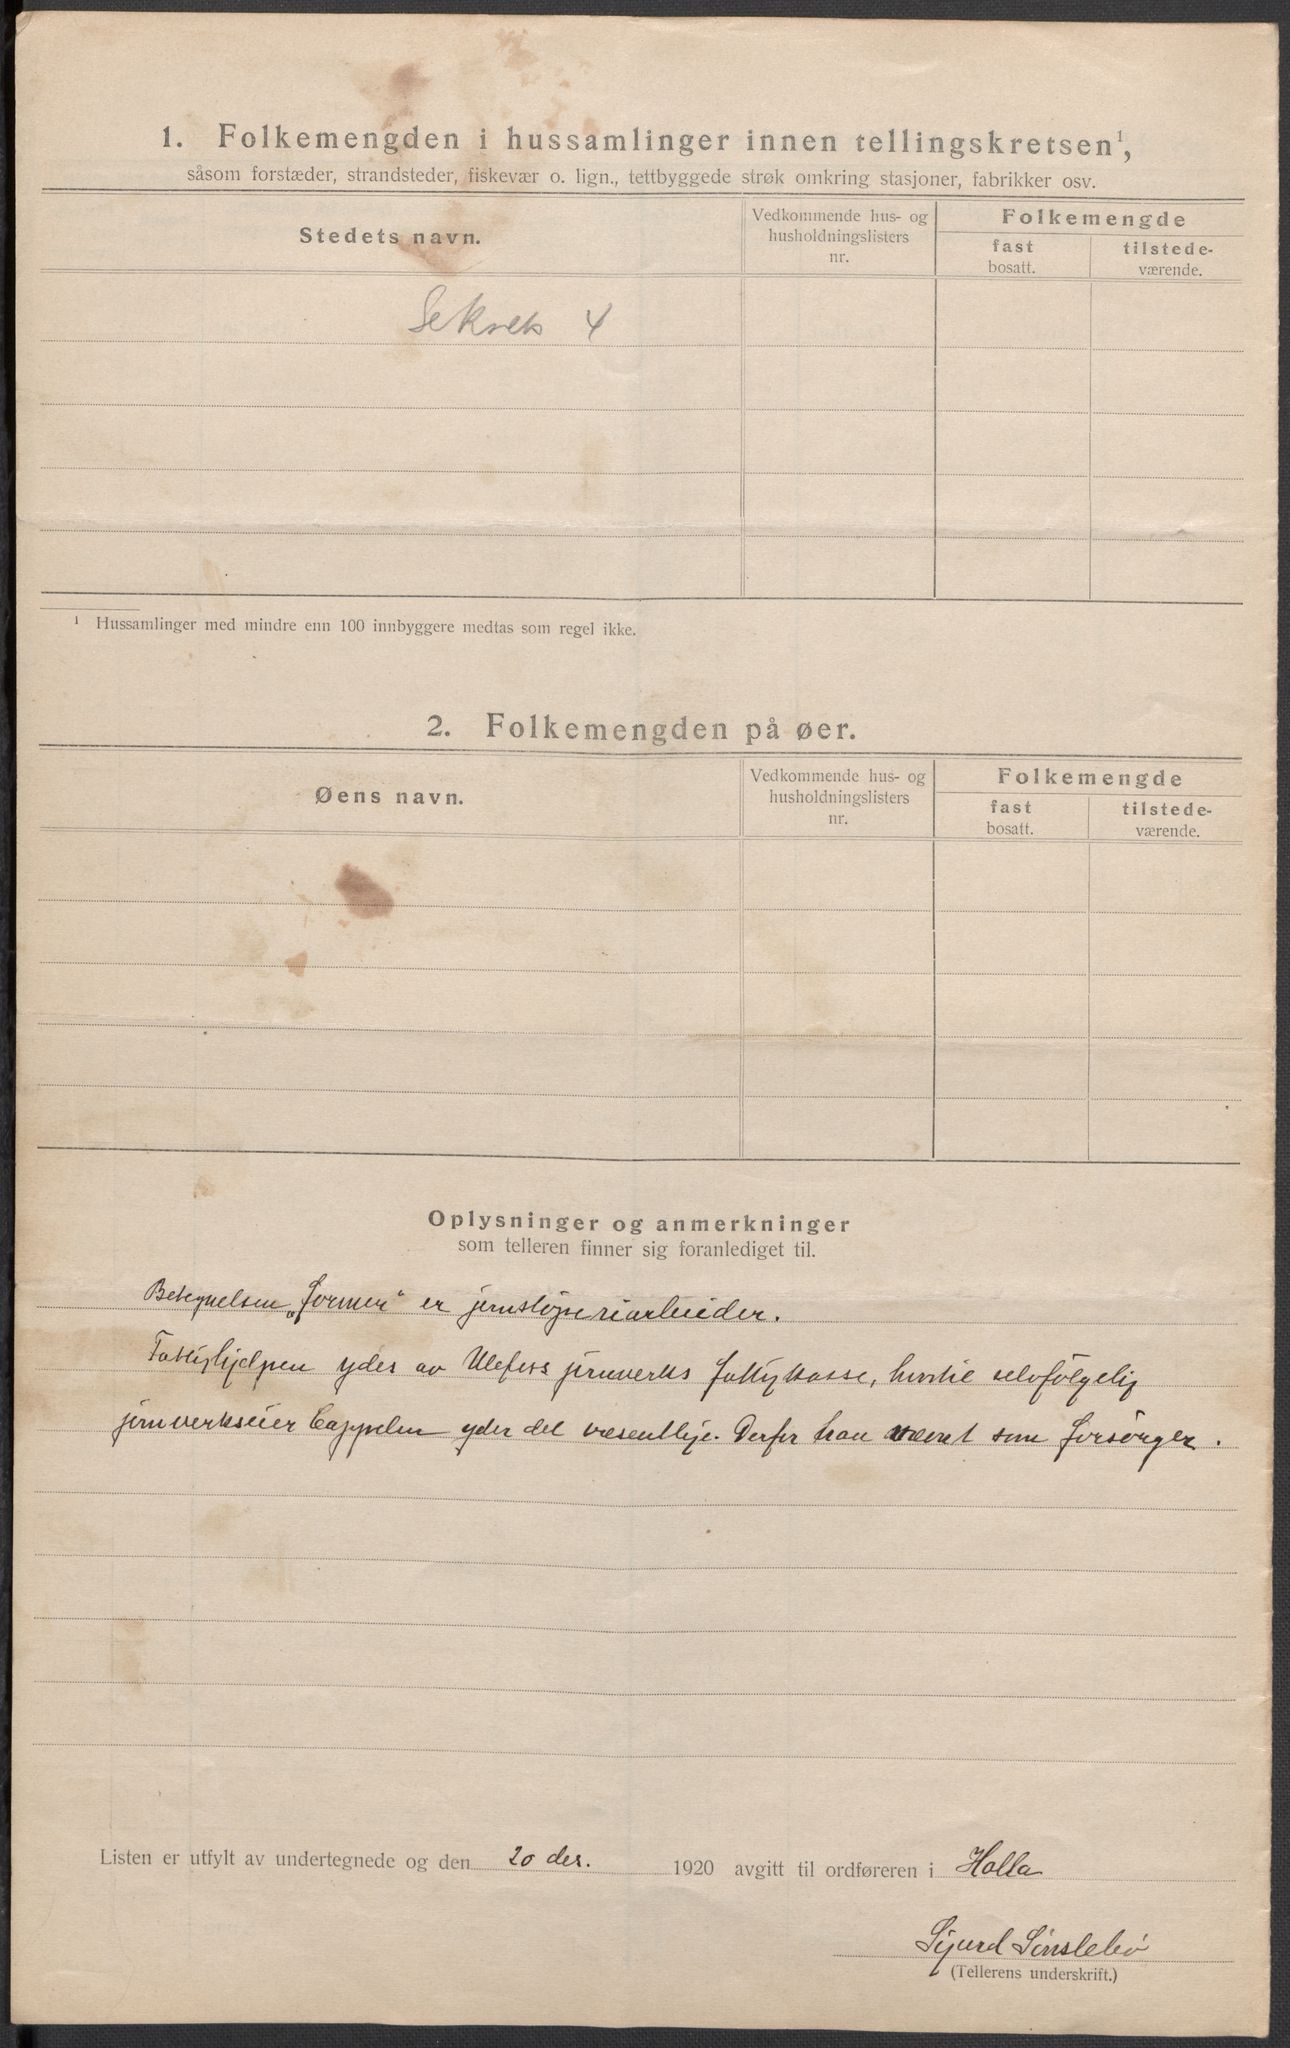 1. Folkemengden i hussamlinger innen tellingskretsen¹,
såsom forstæder, strandsteder, fiskevær o. lign., tettbyggede strøk omkring stasjoner, fabrikker osv.
Stedets navn.
Vedkommende hus- og
husholdningslisters
nr.
Folkemengde
fast
bosatt.
tilstede-
værende.
Se Krets 4
¹ Hussamlinger med mindre enn 100 innbyggere medtas som regel ikke.
2. Folkemengden på øer.
Øens navn.
Vedkommende hus- og
husholdningslisters
nr.
Folkemengde
fast
bosatt.
tilstede-
værende.
Oplysninger og anmerkninger
som telleren finner sig foranlediget til.
Betegnelsen „former“ er jernstøperiarbeider.
Fattighjelpen ydes av Ulefoss jernverks fattigkasse, hvortil selvfølgelig
jernverkseier Cappelen yder det væsentlige. Derfor han nævnt som forsørger.
Listen er utfylt av undertegnede og den 20 des. 1920 avgitt til ordføreren i Holla
Sigurd Sønstebø
(Tellerens underskrift.)